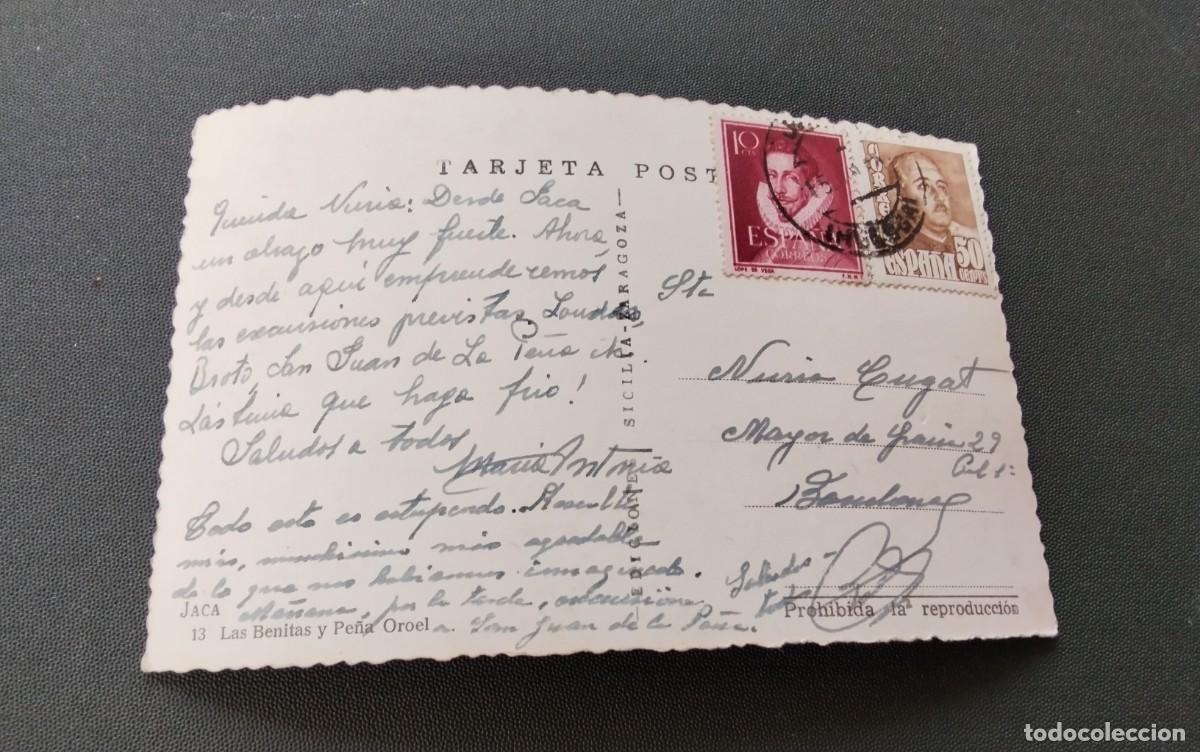 TARJETA POST
Querida Nuria: Desde Jaca
un abrazo muy fuerte. Ahora
y desde aquí emprenderemos
las excursiones previstas
Broto, San Juan de La Peña
Lástima que haga frio!
Saludos a todos
Maria Antonia
Todo esto es estupendo. Resulta
más, muchísimo más agradable
de lo que nos habíamos imaginado.
Mañana, por la tarde, excursión
a San Juan de la Peña.
Saludos
JACA
13 Las Benitas y Peña Oroel
EDICIONES SICILIA-ZARAGOZA
10 CTS
ESPAÑA
CORREOS
LOPE DE VEGA
F.N.M.T
CORREOS
ESPAÑA
50
CENTS
Sta
Nuria Cugat
Mayor de Gracia 29
Barcelona
Prohibida la reproducción
todocoleccion